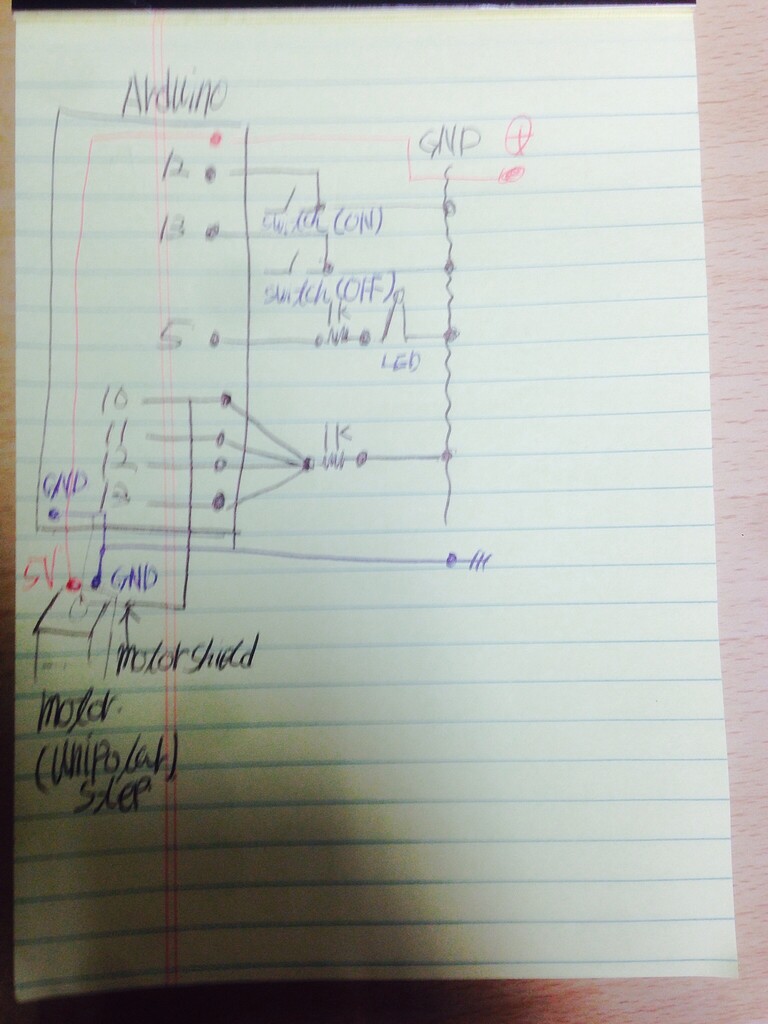 Arduino
GND +
12
switch (ON)
13
switch (OFF)
1K
5
LED
10
11
1K
12
GND
13
5V GND
motor shield
motor.
(Unipolar)
step